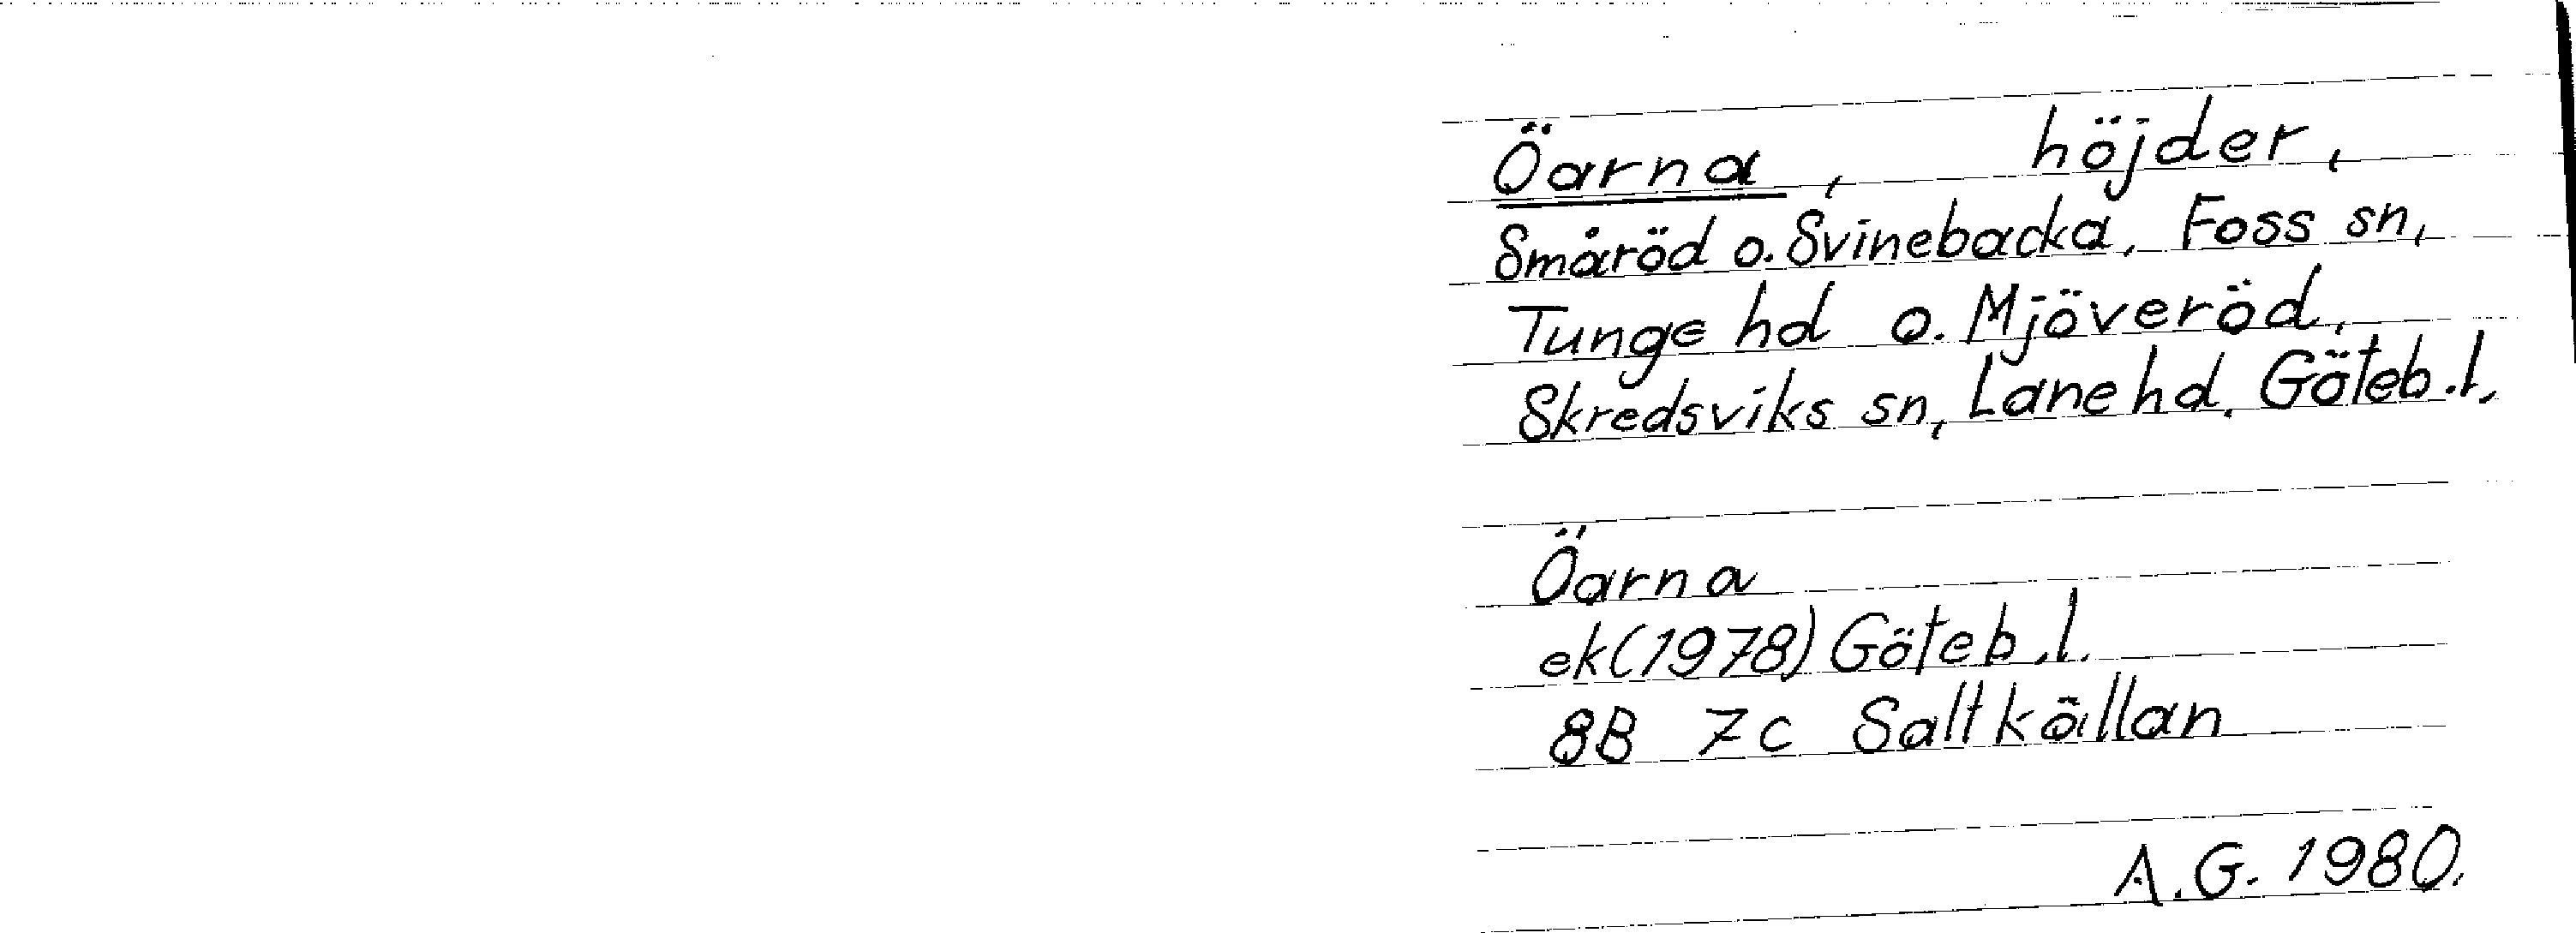 Öarna, höjder,
Småröd o. Svinebacka, Foss sn,
Tunge hd o. Mjöveröd,
Skredsviks sn, Lane hd, Göteb.l,
Öarna
ek(1978) Göteb.l.
8B 7c Saltkällan
A.G. 1980.